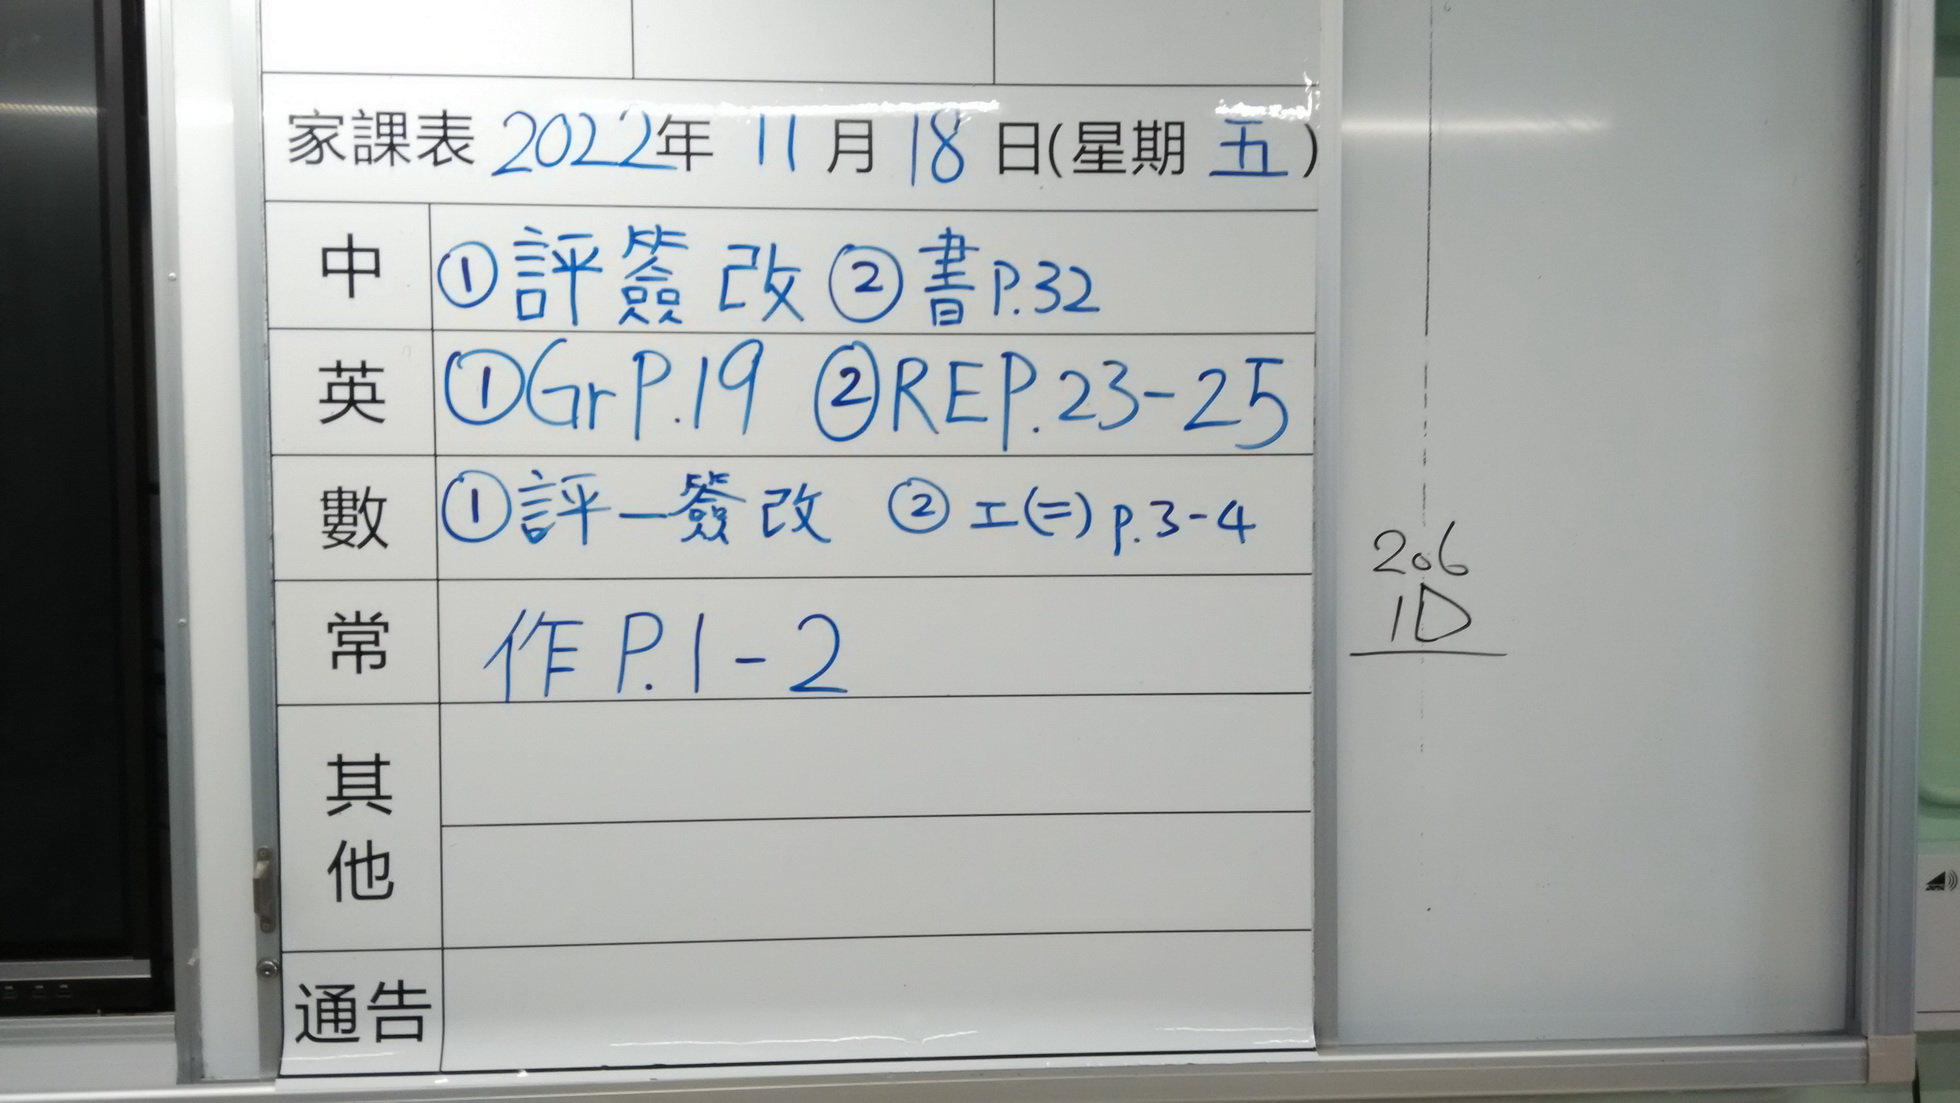 家課表 2022年 11 月 18 日(星期 五)
中 ①評簽改 ②書P.32
英 ①Gr P.19 ②RE P.23-25
數 ①評一簽改 ②工(二) p.3-4
常 作 P.1-2
其他
通告
206
1D